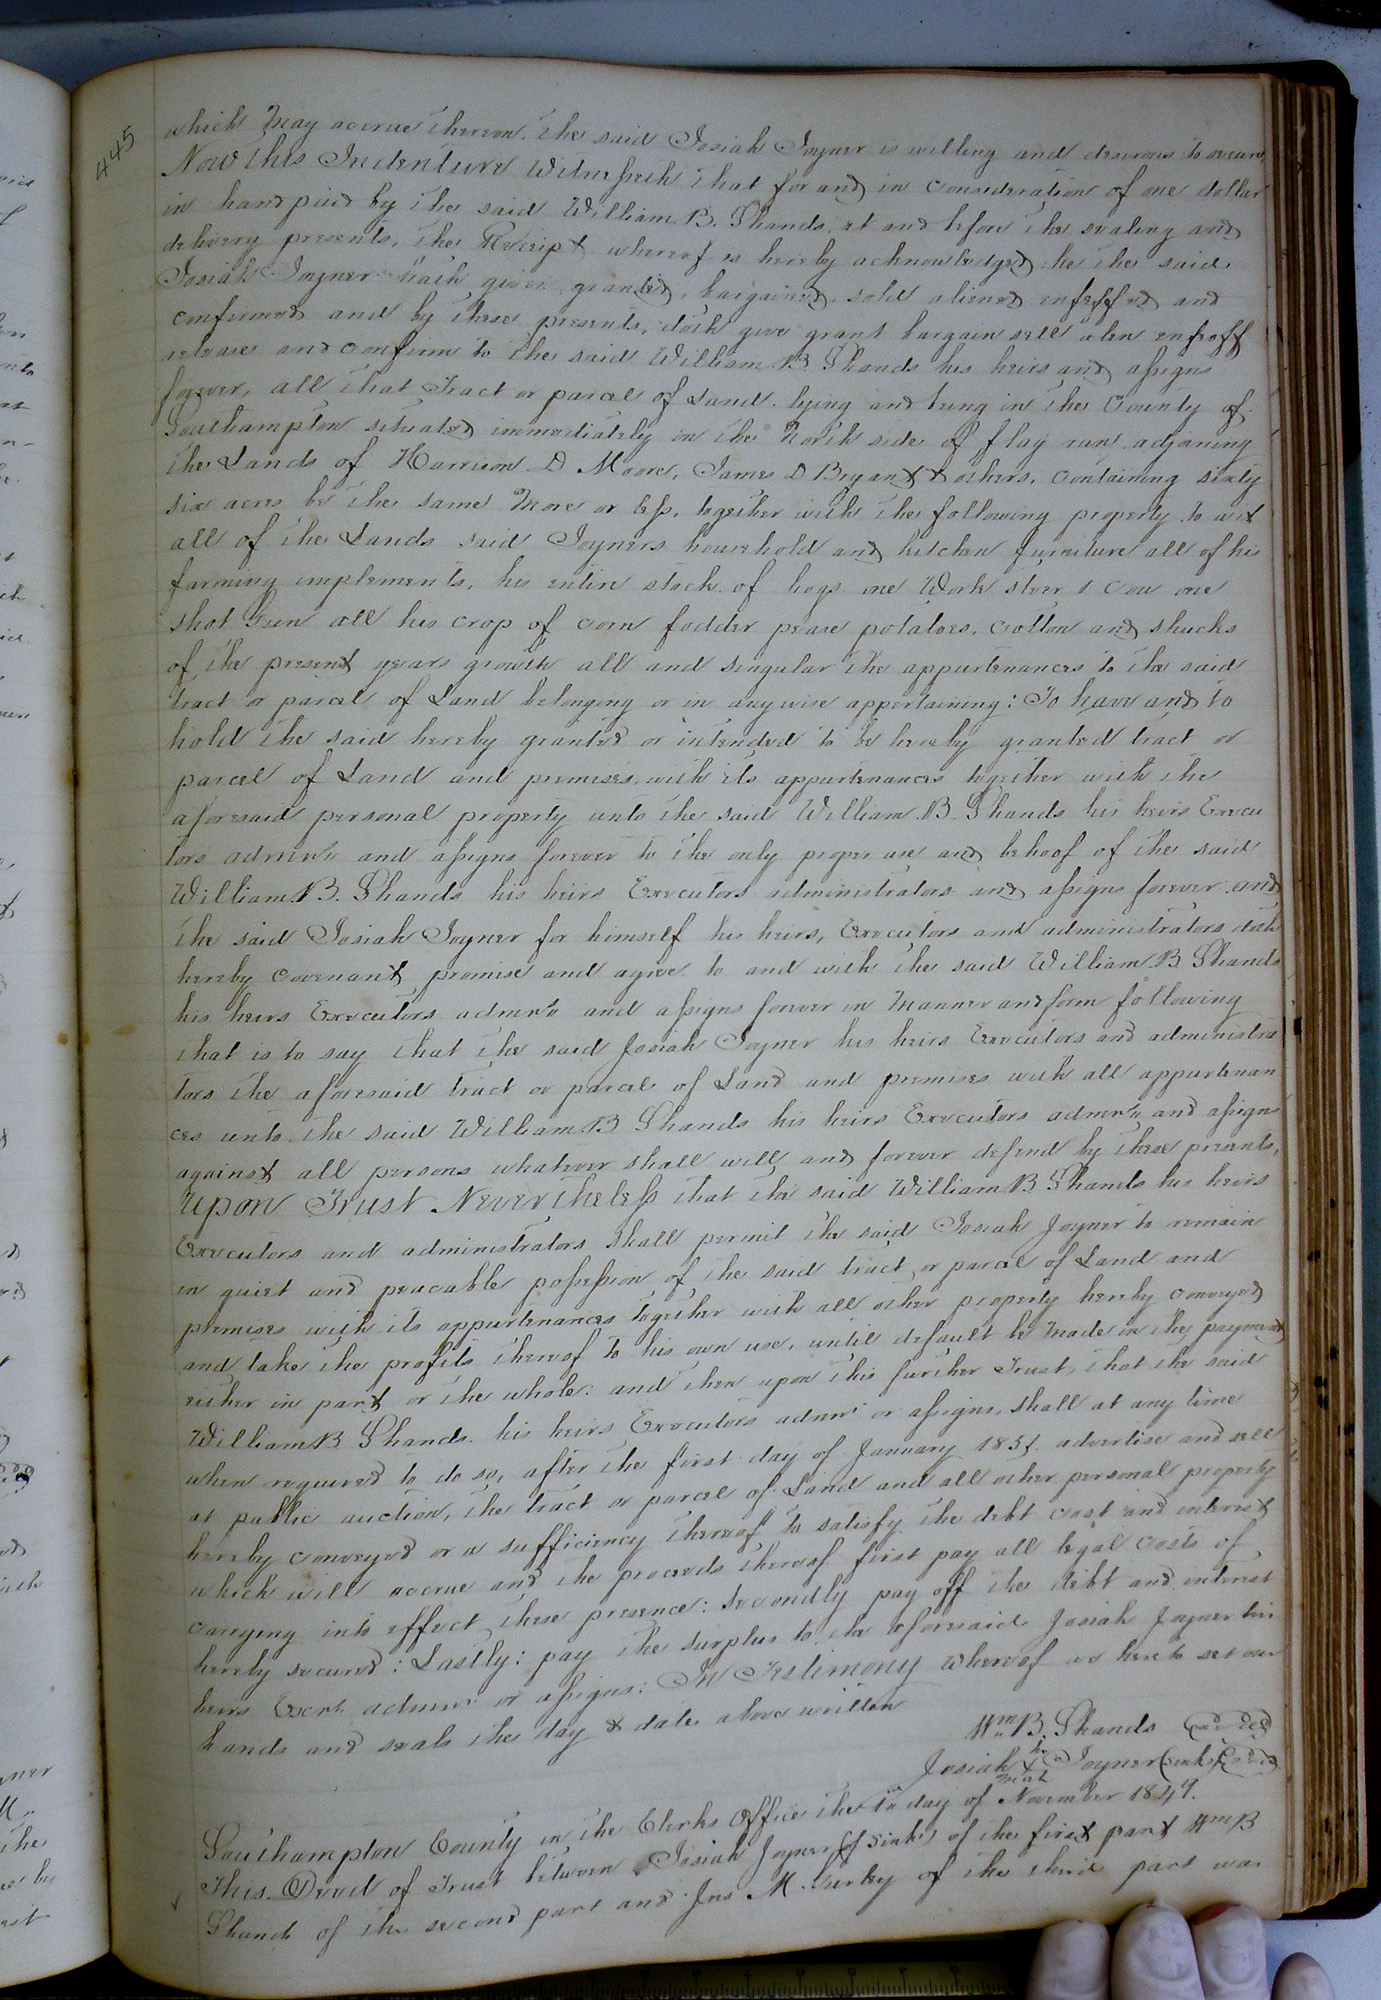 445
which may accrue thereon. The said Josiah Joyner is willing and desirous to secure,
Now this Indenture Witnesseth that for and in consideration of one dollar
in hand paid by the said William B. Shands at and before the sealing and
delivery presents, the Receipt whereof is hereby acknowledged he the said
Josiah Joyner hath given granted, bargained, sold aliened enfeffed and
confirmed and by these presents, doth give grant bargain sell alien enfeoff
release and confirm to the said William B Shands his heirs and assigns
forever, all that Tract or parcel of Land lying and being in the County of
Southampton situated immediately on the North side of flag run adjoining
the Lands of Harrison D Moore, James D Bryant & others, containing sixty
six acres be the same more or less, together with the following property to wit
all of the Lands said Joyners household and kitchen furniture all of his
farming implements, his entire stock of hogs one Work steer 1 Cow one
shot Gun all his crop of corn fodder pease potatoes, cotton and shucks
of the present years growth all and singular the appurtenances to the said
tract or parcel of Land belonging or in anywise appertaining: To have and to
hold the said hereby granted or intended to be hereby granted tract or
parcel of Land and premises with its appurtenances together with the
aforesaid personal property unto the said William B Shands his heirs Execu
tors admrs and assigns forever to the only proper use and behoof of the said
William B. Shands his heirs Executors administrators and assigns forever and
the said Josiah Joyner for himself his heirs, Executors and administrators doth
hereby covenant, promise and agree to and with the said William B Shands
his heirs Executors admrs and assigns forever in manner and form following
that is to say that the said Josiah Joyner his heirs Executors and administra
tors the aforesaid tract or parcel of Land and premises with all appurtenan
ces unto the said William B Shands his heirs Executors admrs and assigns
against all persons whatever shall will and forever defend by these presents,
Upon Trust Nevertheless that the said William B Shands his heirs
Executors and administrators shall permit the said Josiah Joyner to remain
in quiet and peacable possession of the said tract or parcel of Land and
premises with its appurtenances together with all other property hereby conveyed
and take the profits thereof to his own use, until default be made in the payment
either in part or the whole: and then upon this further Trust, that the said
William B Shands his heirs Executors admrs or assigns, shall at any time
when required to do so, after the first day of January 1851 advertise and sell
at public auction, the tract or parcel of Land and all other personal property
hereby conveyed or a sufficiency thereof to satisfy the debt cost and interest
which will accrue and the proceeds thereof first pay all legal costs of
carrying into effect these presence: Secondly pay off the debt and interest
hereby secured: Lastly: pay the surplus to the aforesaid Josiah Joyner his
heirs Exers admrs or assigns: In Testimony whereof we hereto set our
hands and seals the day & date above written
Wm B. Shands
Josiah his X mark Joyner
Southampton County in the Clerks Office the day of November 1847.
This Deed of Trust between Josiah Joyner of the first part Wm B
Shands of the second part and Jno M. Gurley of the third part was